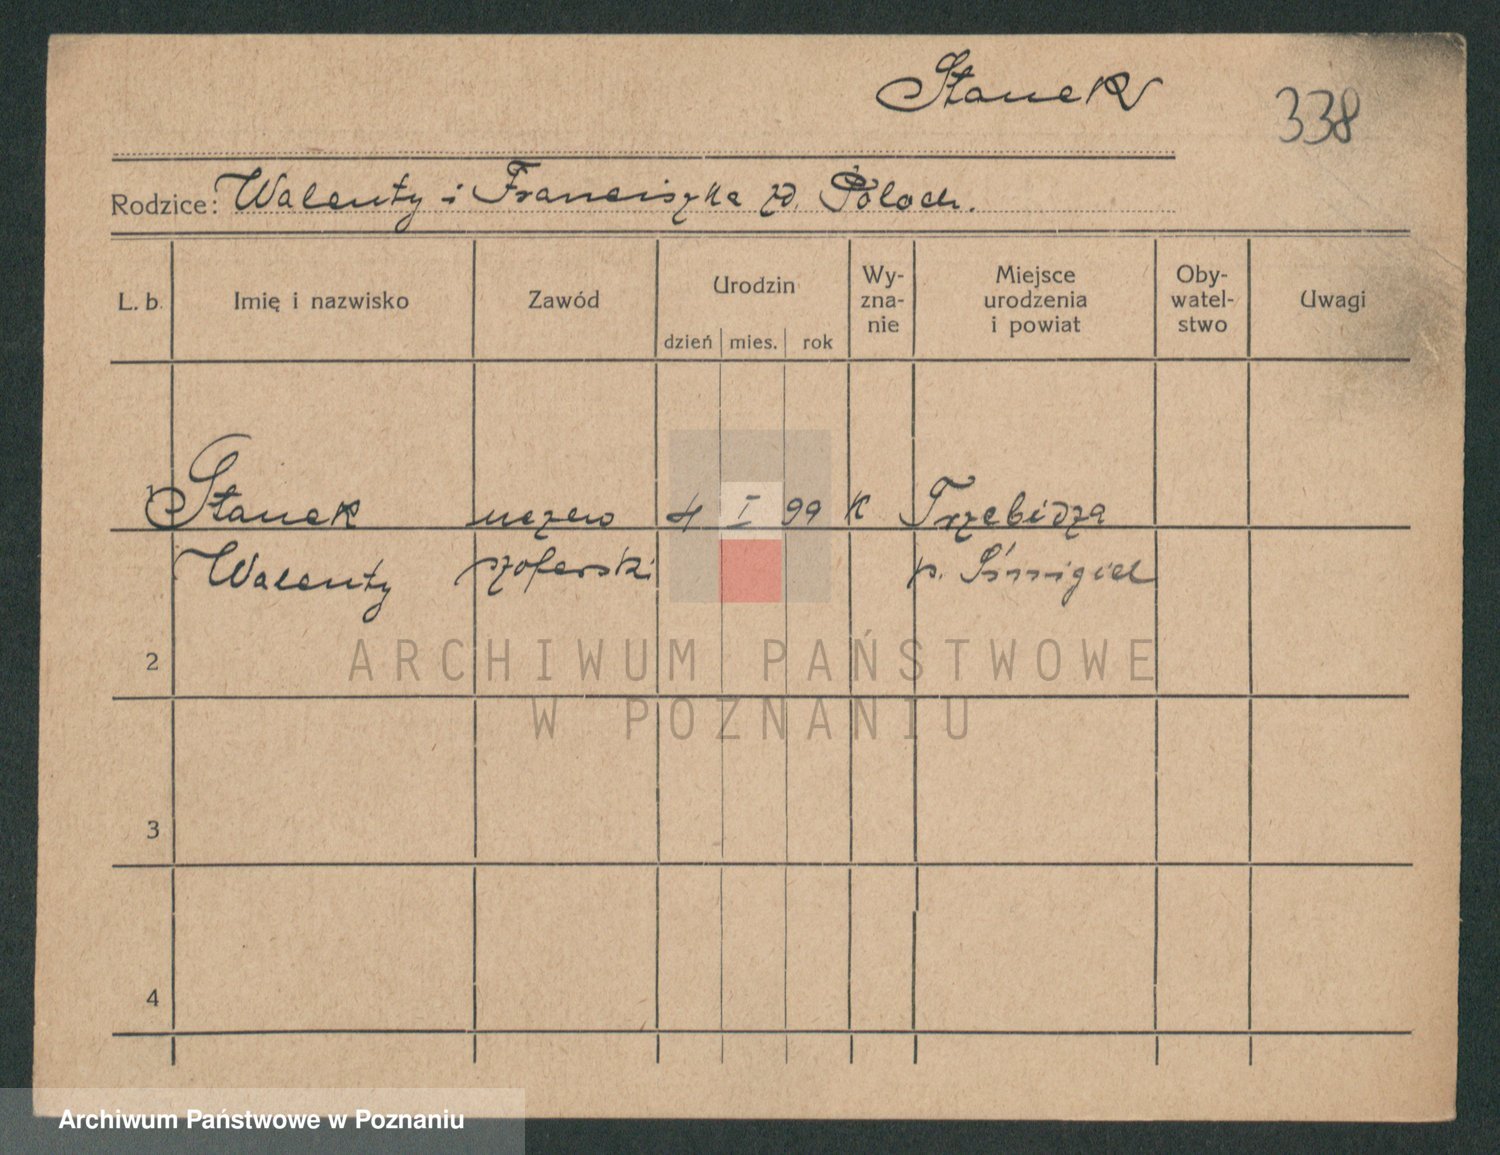 Stanek
338
Rodzice: Walenty i Franciszka zd. Poloch.
L. b. Imię i nazwisko Zawód Urodzin dzień mies. rok Wy-zna-nie Miejsce urodzenia i powiat Oby-watel-stwo Uwagi
1 Stanek uczeń 4 I 99 K Trzebidza
Walenty szoferski p. Śmigiel
2
ARCHIWUM PAŃSTWOWE
W POZNANIU
3
4
Archiwum Państwowe w Poznaniu